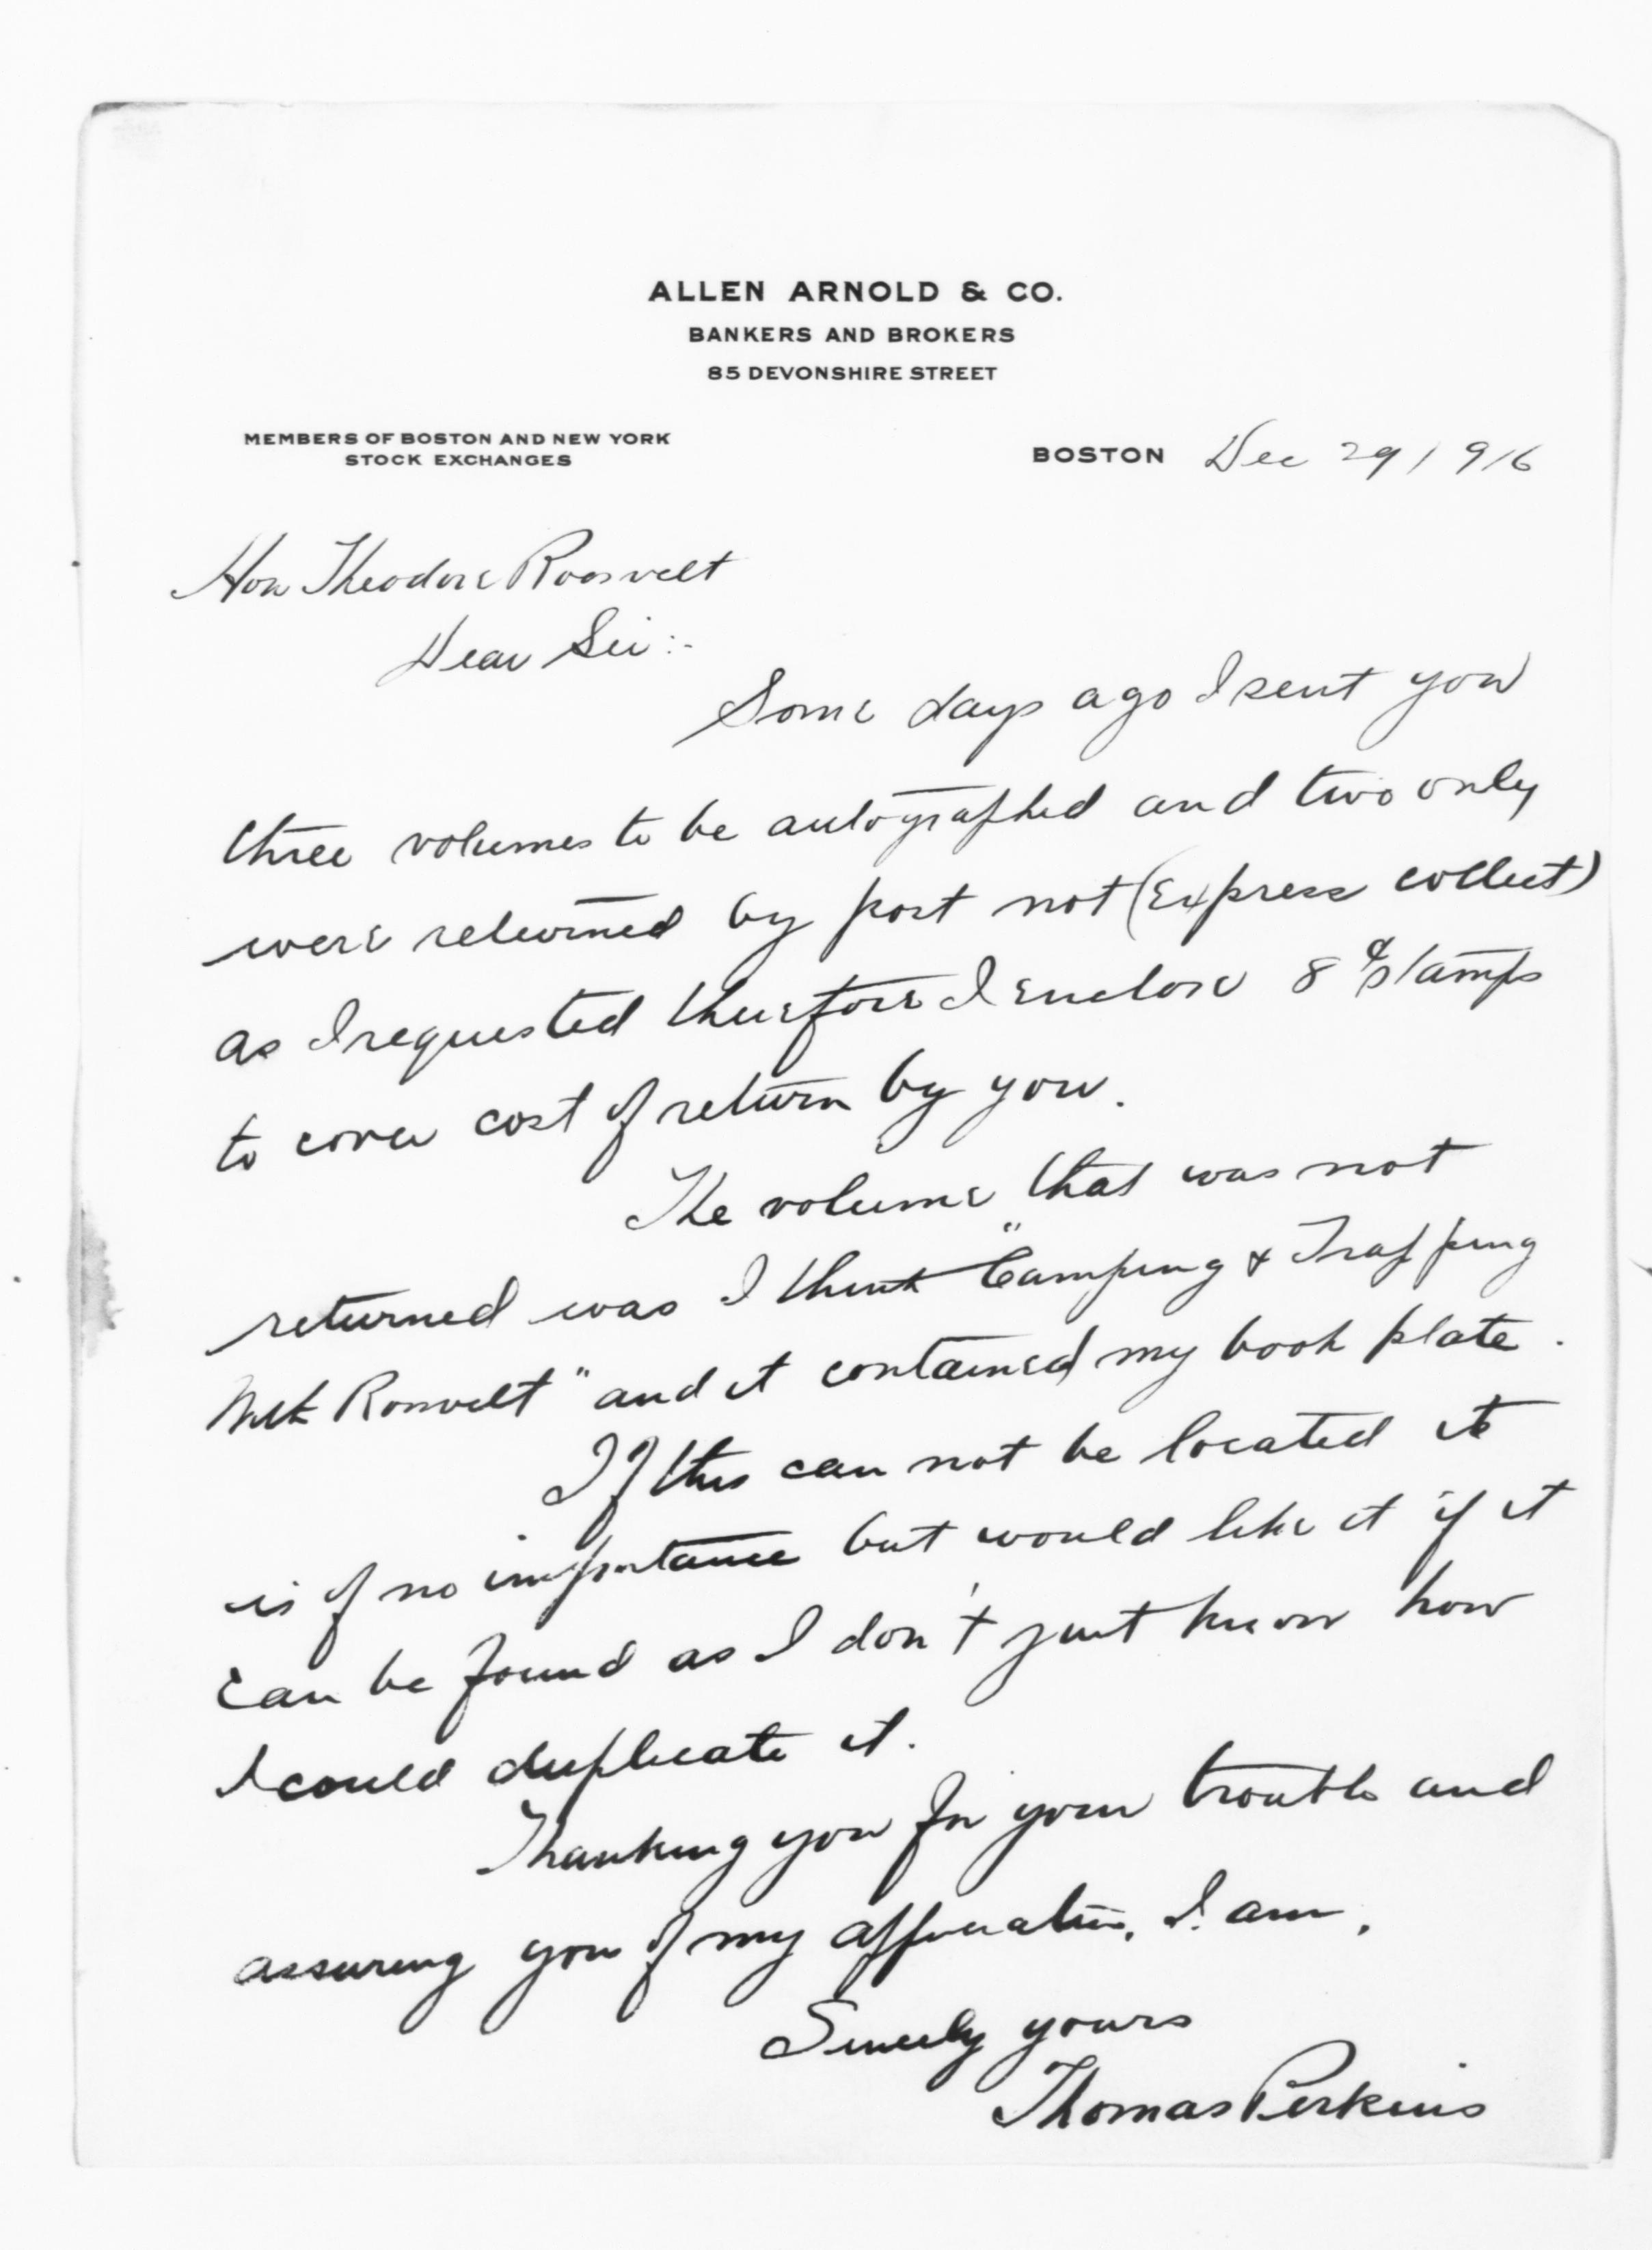 ALLEN ARNOLD & CO.
BANKERS AND BROKERS
85 DEVONSHIRE STREET
MEMBERS OF BOSTON AND NEW YORK
STOCK EXCHANGES
BOSTON Dec 29 1916
Hon Theodore Roosvelt
Dear Sir:-
Some days ago I sent you
three volumes to be autographed and two only
were returned by post not (Express collect)
as I requested therefore I enclose 8 ¢ stamps
to cover cost of return by you.
The volume that was not
returned was I think "Camping & Trapping
With Roosvelt" and it contained my book plate.
If this can not be located it
is of no importance but would like it if it
can be found as I don't just know how
I could duplicate it.
Thanking you for your trouble and
assuring you of my appreciation, I am,
Sincerely yours
Thomas Perkins